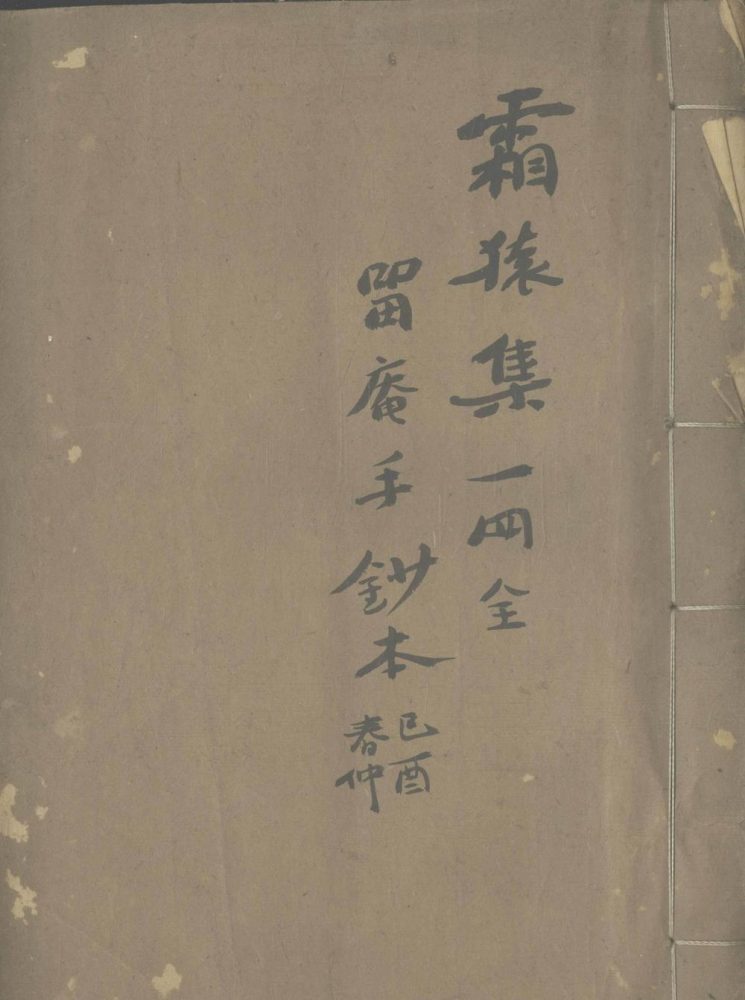 霜猿集 一四全
畱庵手鈔本
己酉
春仲